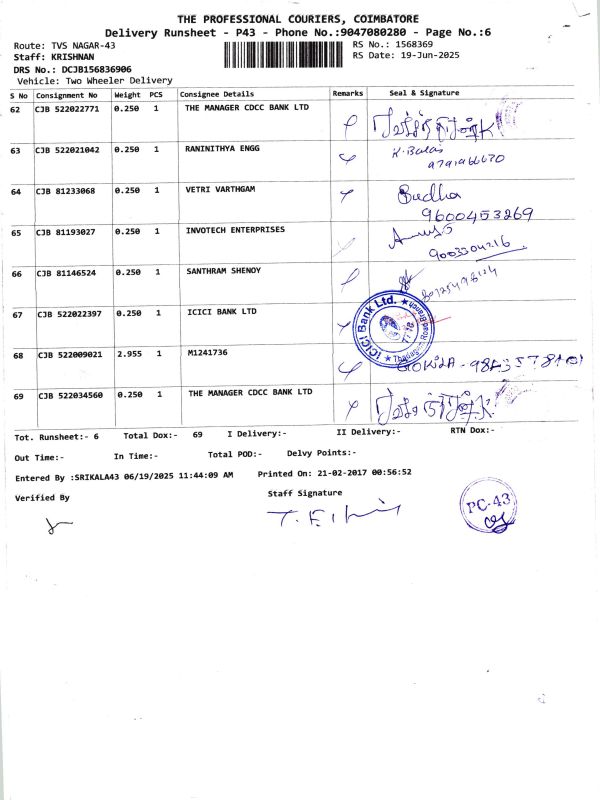 THE PROFESSIONAL COURIERS, COIMBATORE
Delivery Runsheet - P43 - Phone No.:9047080280 - Page No.:6
Route: TVS NAGAR-43 RS No.: 1568369
Staff: KRISHNAN RS Date: 19-Jun-2025
DRS No.: DCJB156836906
Vehicle: Two Wheeler Delivery
S No Consignment No Weight PCS Consignee Details Remarks Seal & Signature
62 CJB 522022771 0.250 1 THE MANAGER CDCC BANK LTD
63 CJB 522021042 0.250 1 RANINITHYA ENGG K. Balaji
9791966670
64 CJB 81233068 0.250 1 VETRI VARTHGAM Budha
9600453269
65 CJB 81193027 0.250 1 INVOTECH ENTERPRISES
9003304216
66 CJB 81146524 0.250 1 SANTHRAM SHENOY
67 CJB 522022397 0.250 1 ICICI BANK LTD ICICI Bank Ltd. ★ Thadagam Road Branch ★
68 CJB 522009021 2.955 1 M1241736 GOKILA -
69 CJB 522034560 0.250 1 THE MANAGER CDCC BANK LTD
Tot. Runsheet:- 6 Total Dox:- 69 I Delivery:- II Delivery:- RTN Dox:-
Out Time:- In Time:- Total POD:- Delvy Points:-
Entered By :SRIKALA43 06/19/2025 11:44:09 AM Printed On: 21-02-2017 00:56:52
Verified By Staff Signature
PC-43